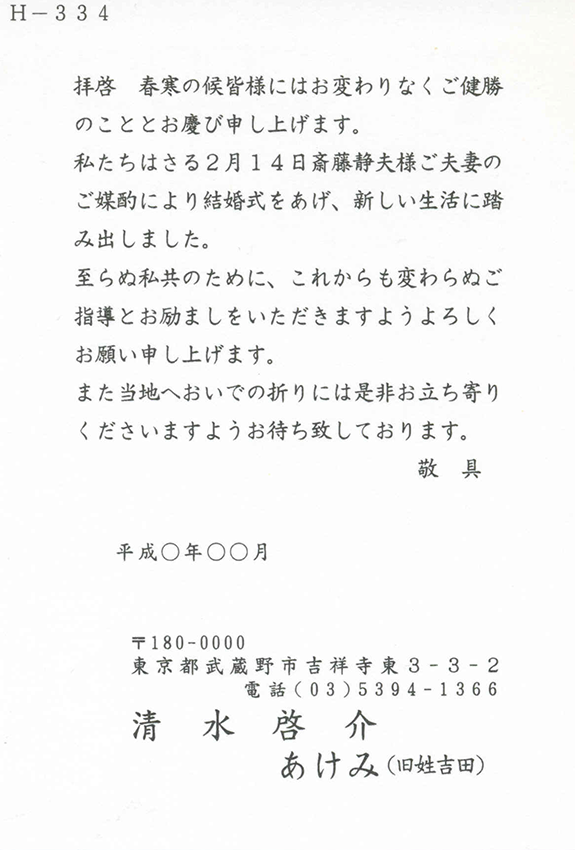 H－334
拝啓　春寒の候皆様にはお変わりなくご健勝
のこととお慶び申し上げます。
私たちはさる２月１４日斎藤静夫様ご夫妻の
ご媒酌により結婚式をあげ、新しい生活に踏
み出しました。
至らぬ私共のために、これからも変わらぬご
指導とお励ましをいただきますようよろしく
お願い申し上げます。
また当地へおいでの折りには是非お立ち寄り
くださいますようお待ち致しております。
敬　具
平成○年○○月
〒180-0000
東京都武蔵野市吉祥寺東３-３-２
電話(０３)５３９４-１３６６
清　水　啓　介
あけみ(旧姓吉田)